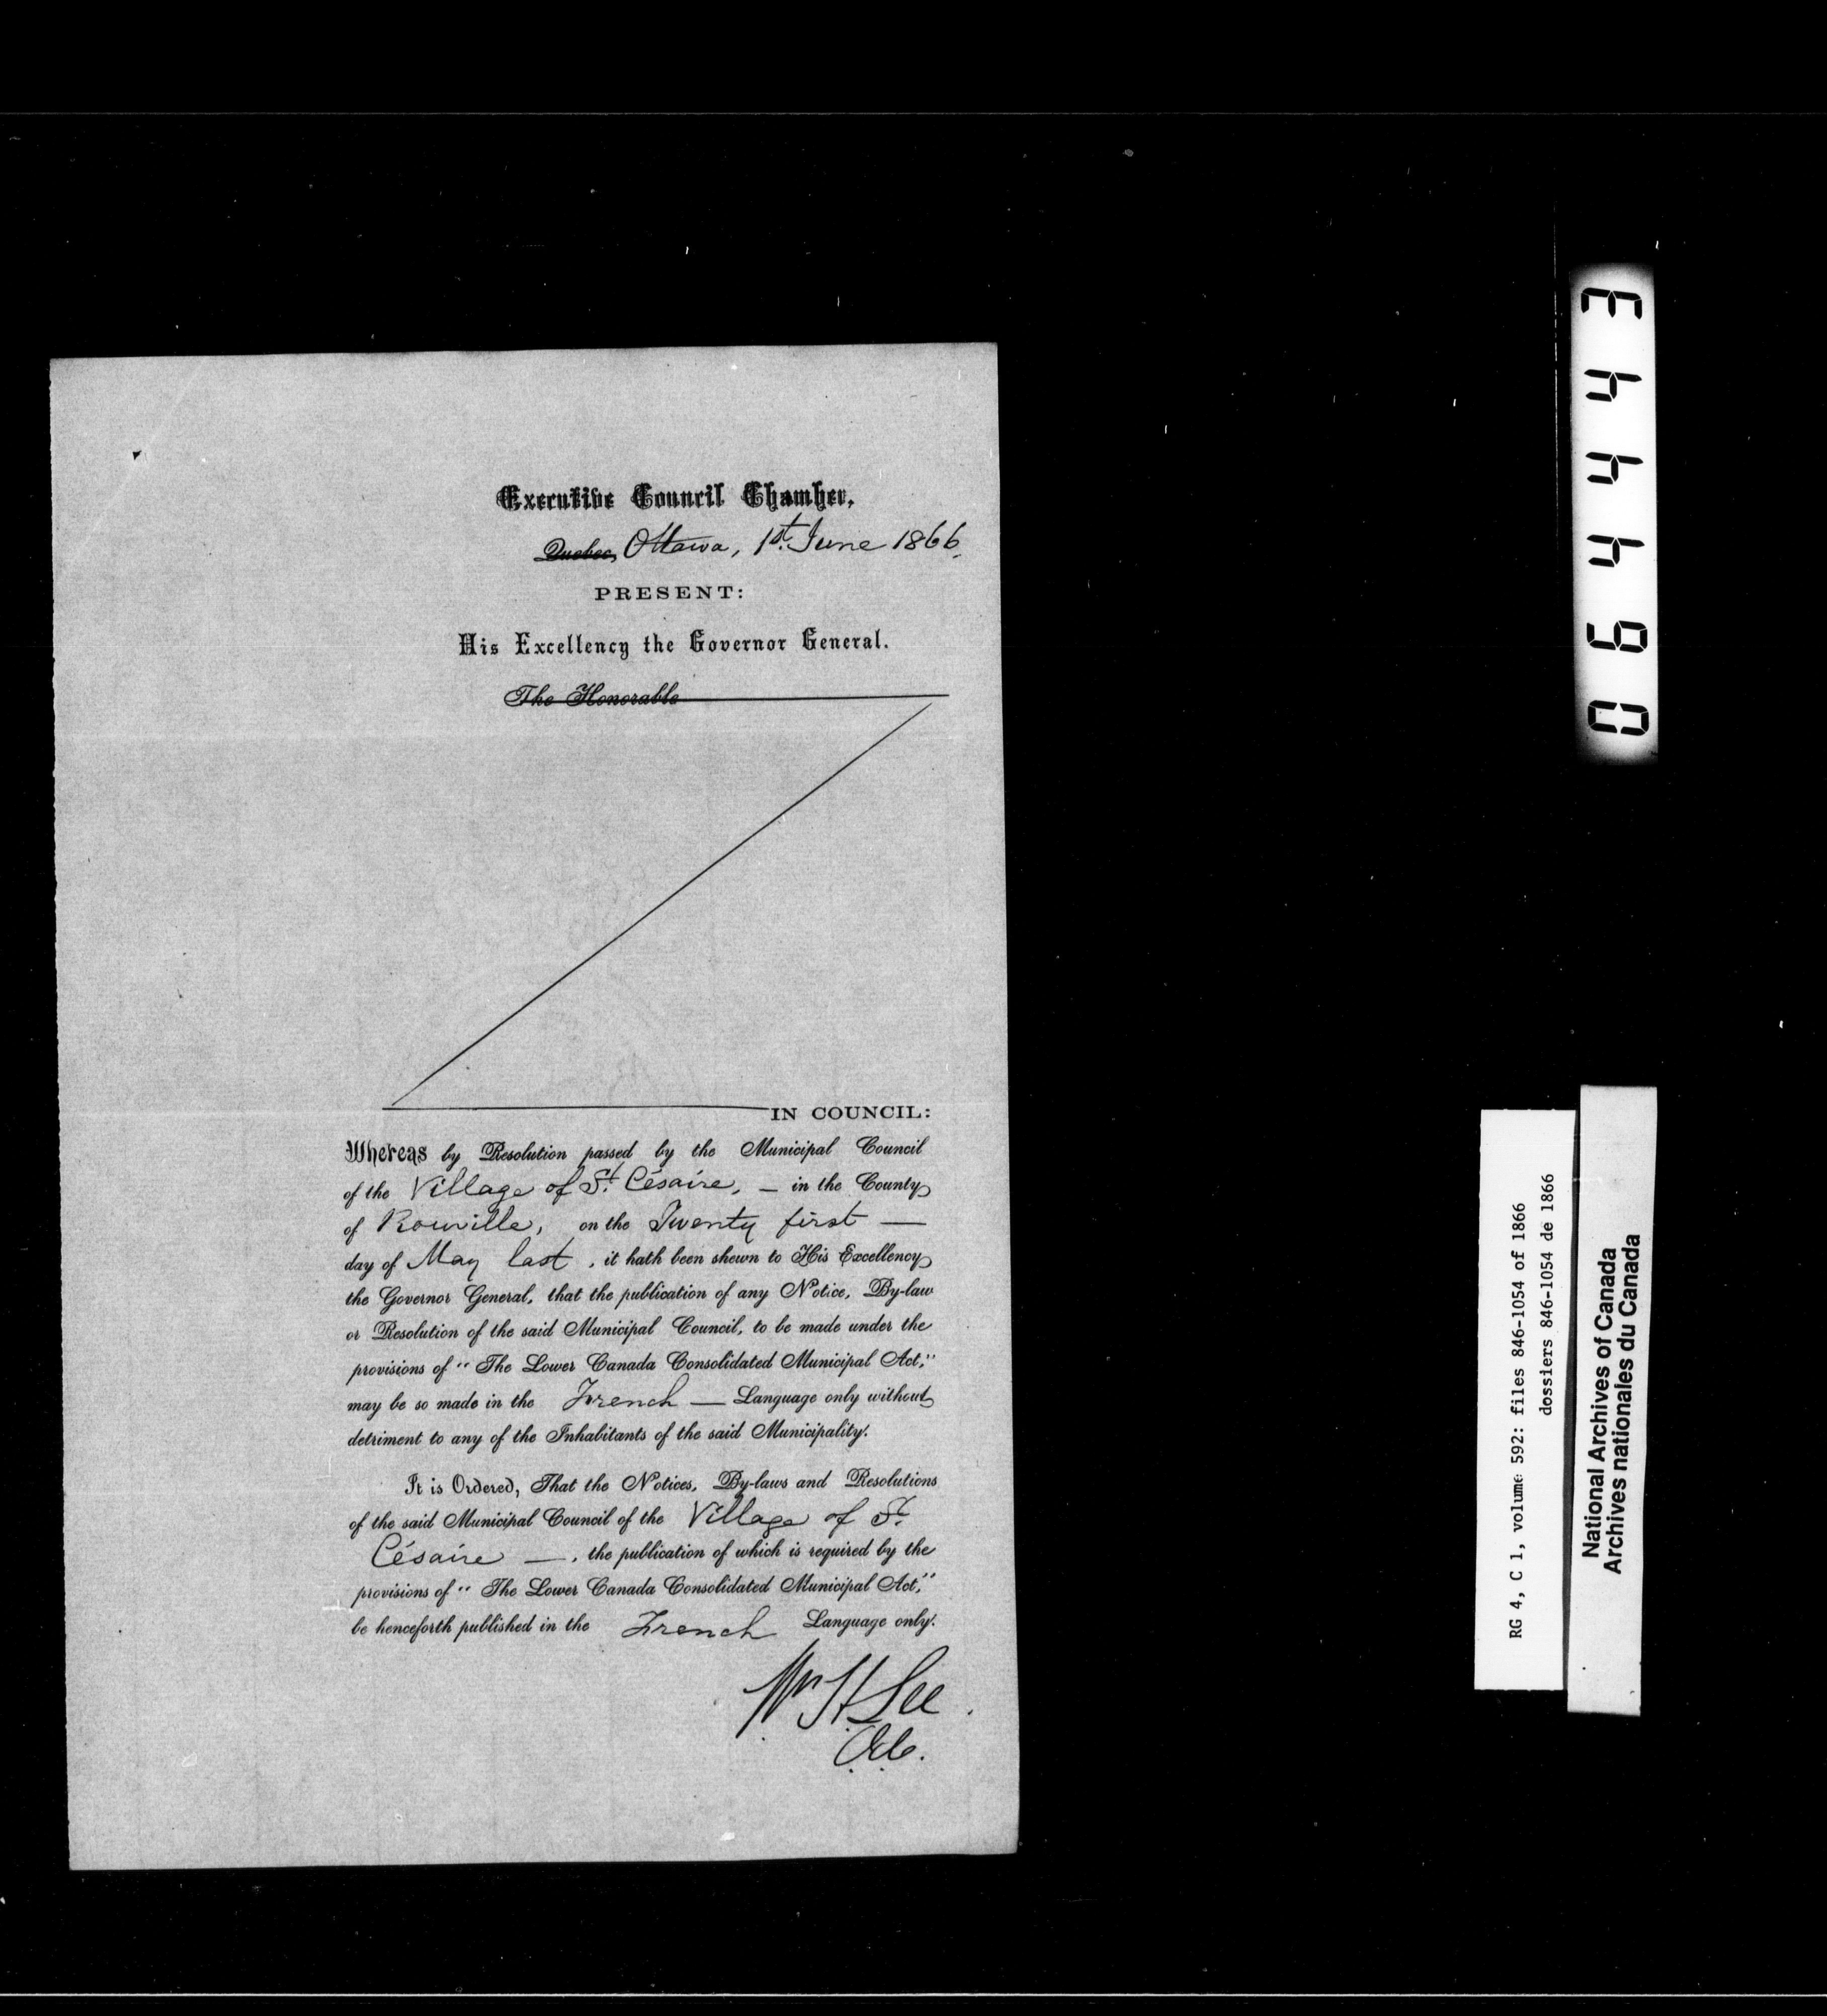 Executive Council Chamber,
Quebec, Ottawa, 1st. June 1866.
PRESENT:
His Excellency the Governor General.
The Honorable
IN COUNCIL:
Whereas by Resolution passed by the Municipal Council
of the Village of St. Césaire, — in the County
of Rouville, on the Twenty first —
day of May last, it hath been shewn to His Excellency
the Governor General, that the publication of any Notice, By-law
or Resolution of the said Municipal Council, to be made under the
provisions of "The Lower Canada Consolidated Municipal Act,"
may be so made in the French — Language only without
detriment to any of the Inhabitants of the said Municipality.
It is Ordered, That the Notices, By-laws and Resolutions
of the said Municipal Council of the Village of St.
Césaire —, the publication of which is required by the
provisions of "The Lower Canada Consolidated Municipal Act,"
be henceforth published in the French Language only.
Wm H Lee
C.E.C.
094443
RG 4, C 1, volume 592: files 846-1054 of 1866
dossiers 846-1054 de 1866
National Archives of Canada
Archives nationales du Canada